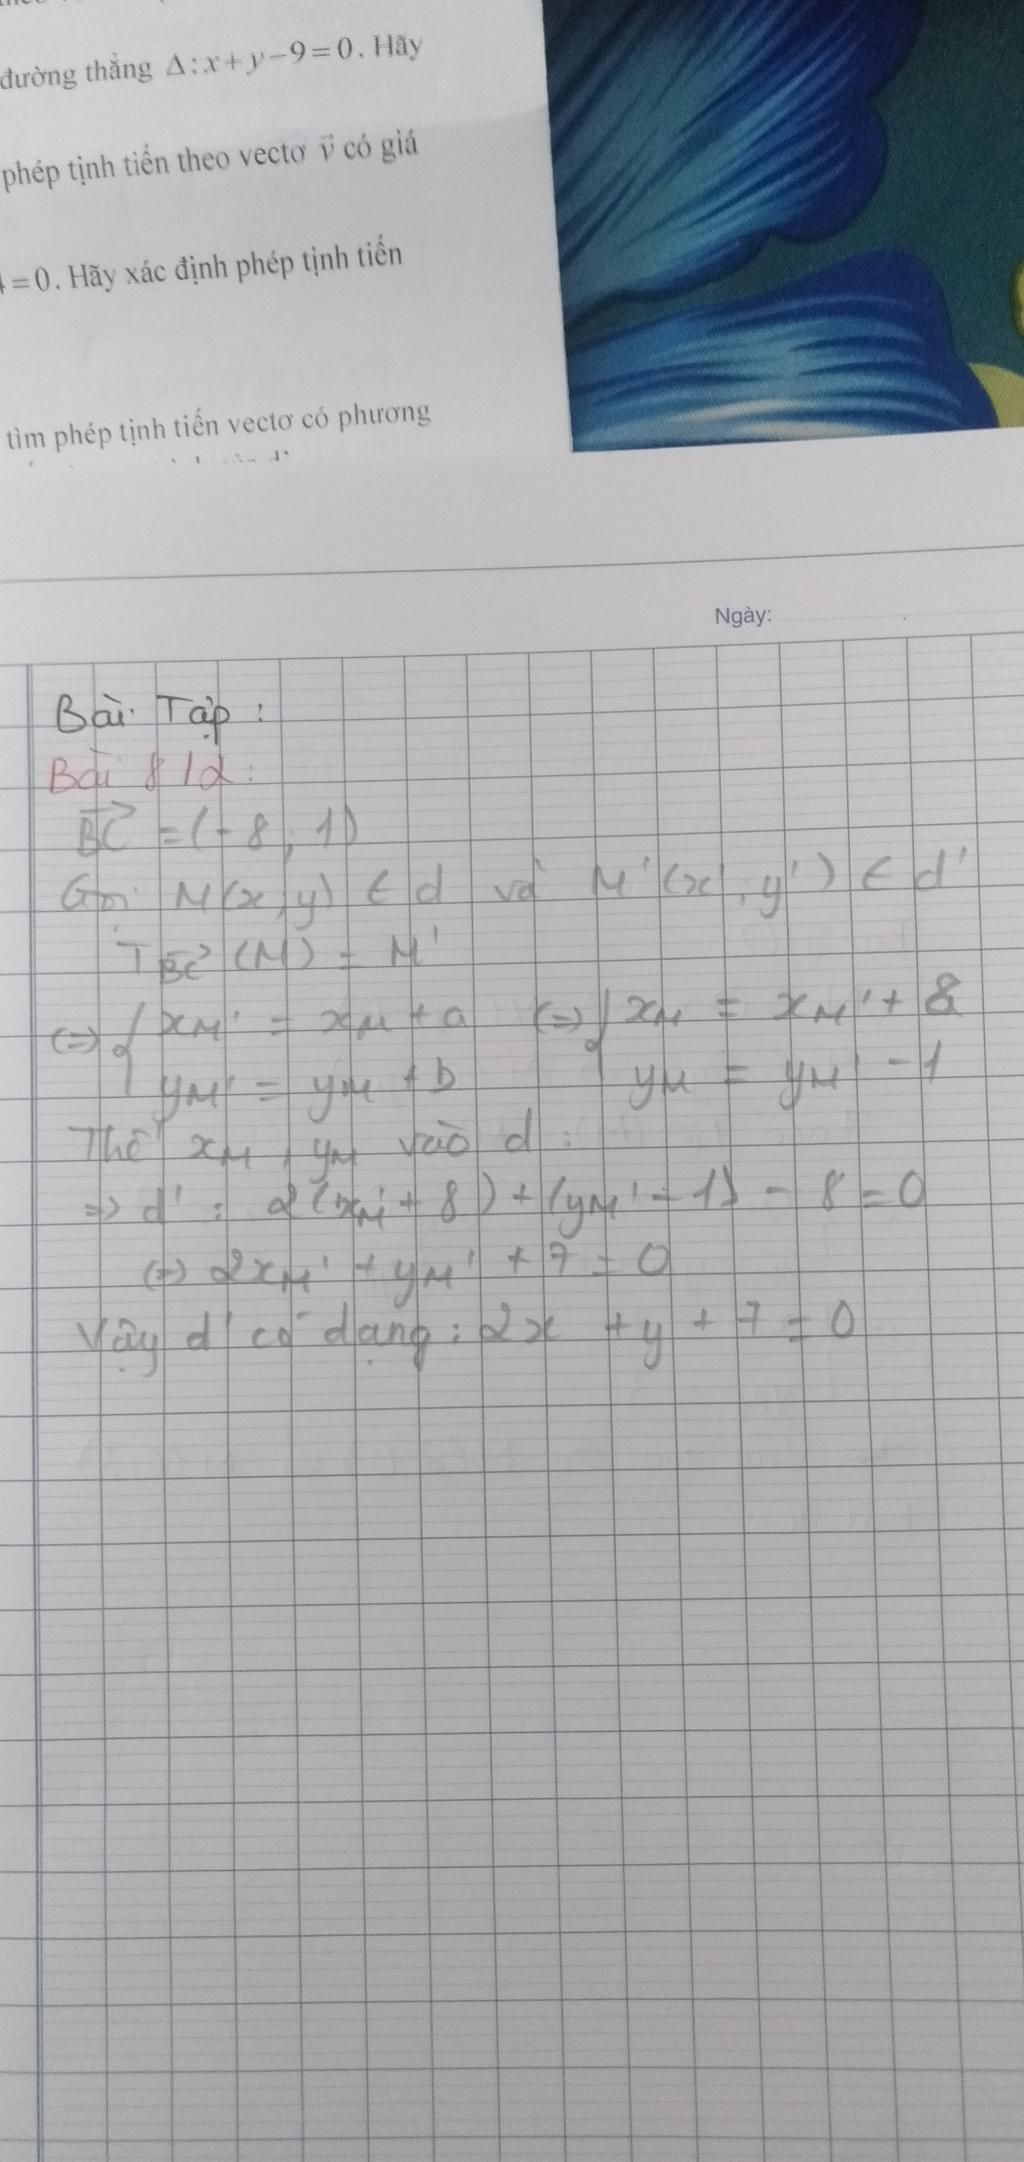 đường thẳng Δ: x+y−9=0. Hãy
phép tịnh tiến theo vectơ v⃗ có giá
=0. Hãy xác định phép tịnh tiến
tìm phép tịnh tiến vectơ có phương
Ngày:
Bài Tập:
Bài 8/d:
BC⃗ = (-8, 1)
Gọi M(x, y) ∈ d và M'(x', y') ∈ d'
T BC⃗ (M) = M'
(=) { xM' = xM + a (=) { xM = xM' + 8
yM' = yM + b yM = yM' - 1
Thế xM, yM vào d:
=> d': 2(xM' + 8) + (yM' - 1) - 8 = 0
(=) 2xM' + yM' + 7 = 0
Vậy d' có dạng: 2x + y + 7 = 0